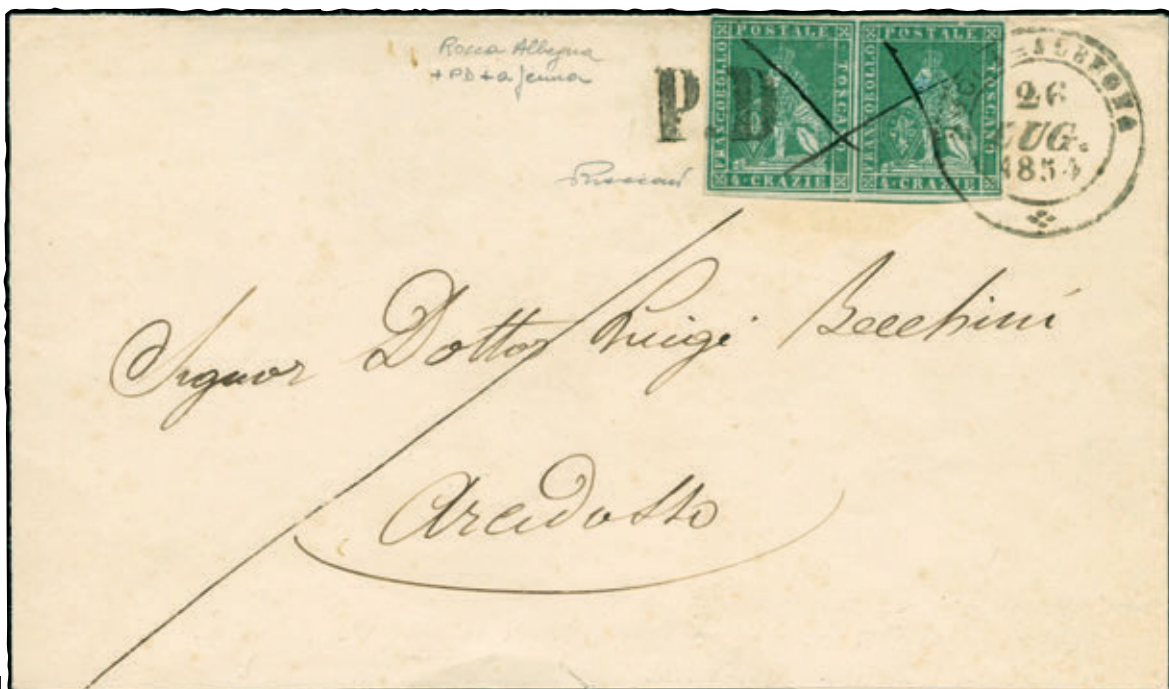 Rocca Albegna
+ PD + a penna
P.D
FRANCOBOLLO POSTALE TOSCANO
4 · CRAZIE
FRANCOBOLLO POSTALE TOSCANO
4 · CRAZIE
26
LUG.
1854
Signor Dottor Luigi Becchini
Arcidosso